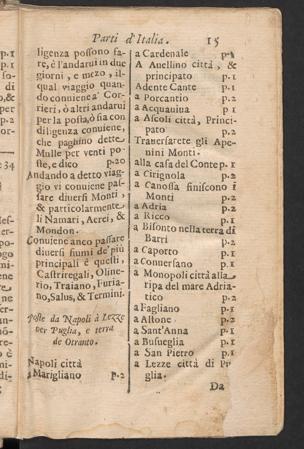 Parti d'Italia. 15
ligenza possono fa-
re, è l'andarui in due
giorni, e mezo, il-
qual viaggio quan-
do conuiene à Cor-
rieri, ò altri andarui
per la posta, ò sia con
diligenza conuiene,
che paghino dette
Mulle per venti po-
ste, e dico p.20
Andando a detto viag-
gio vi conuiene pas-
sare diuersi Monti,
& particolarmente
li Namari, Acrei, &
Mondon.
Conuiene anco passare
diuersi fiumi de' più
principali è questi,
Castriregali, Oline-
rio, Traiano, Furia-
no, Salus, & Termini.
Poste da Napoli à Lezze
per Puglia, e terra
de Otranto.
Napoli città
a Marigliano p.2
a Cardenale p.1
A Auellino città, &
principato p.1
Adente Cante p.1
a Porcantio p.2
a Acquauiua p.1
a Ascoli città, Princi-
pato p.2
Trauersarete gli Ape-
nini Monti.
alla casa del Conte p.1
a Cirignola p.2
a Canossa finiscono i
Monti p.2
a Adria p.2
a Ricco p.1
a Bisonto nella terra di
Barri p.2
a Caporto p.1
a Conuersano p.1
a Monopoli città alla
ripa del mare Adria-
tico p.2
a Fagliano p.1
a Astone p.2
a Sant'Anna p.1
a Busueglia p.1
a San Pietro p.1
a Lezze città di Pu
glia.
Da